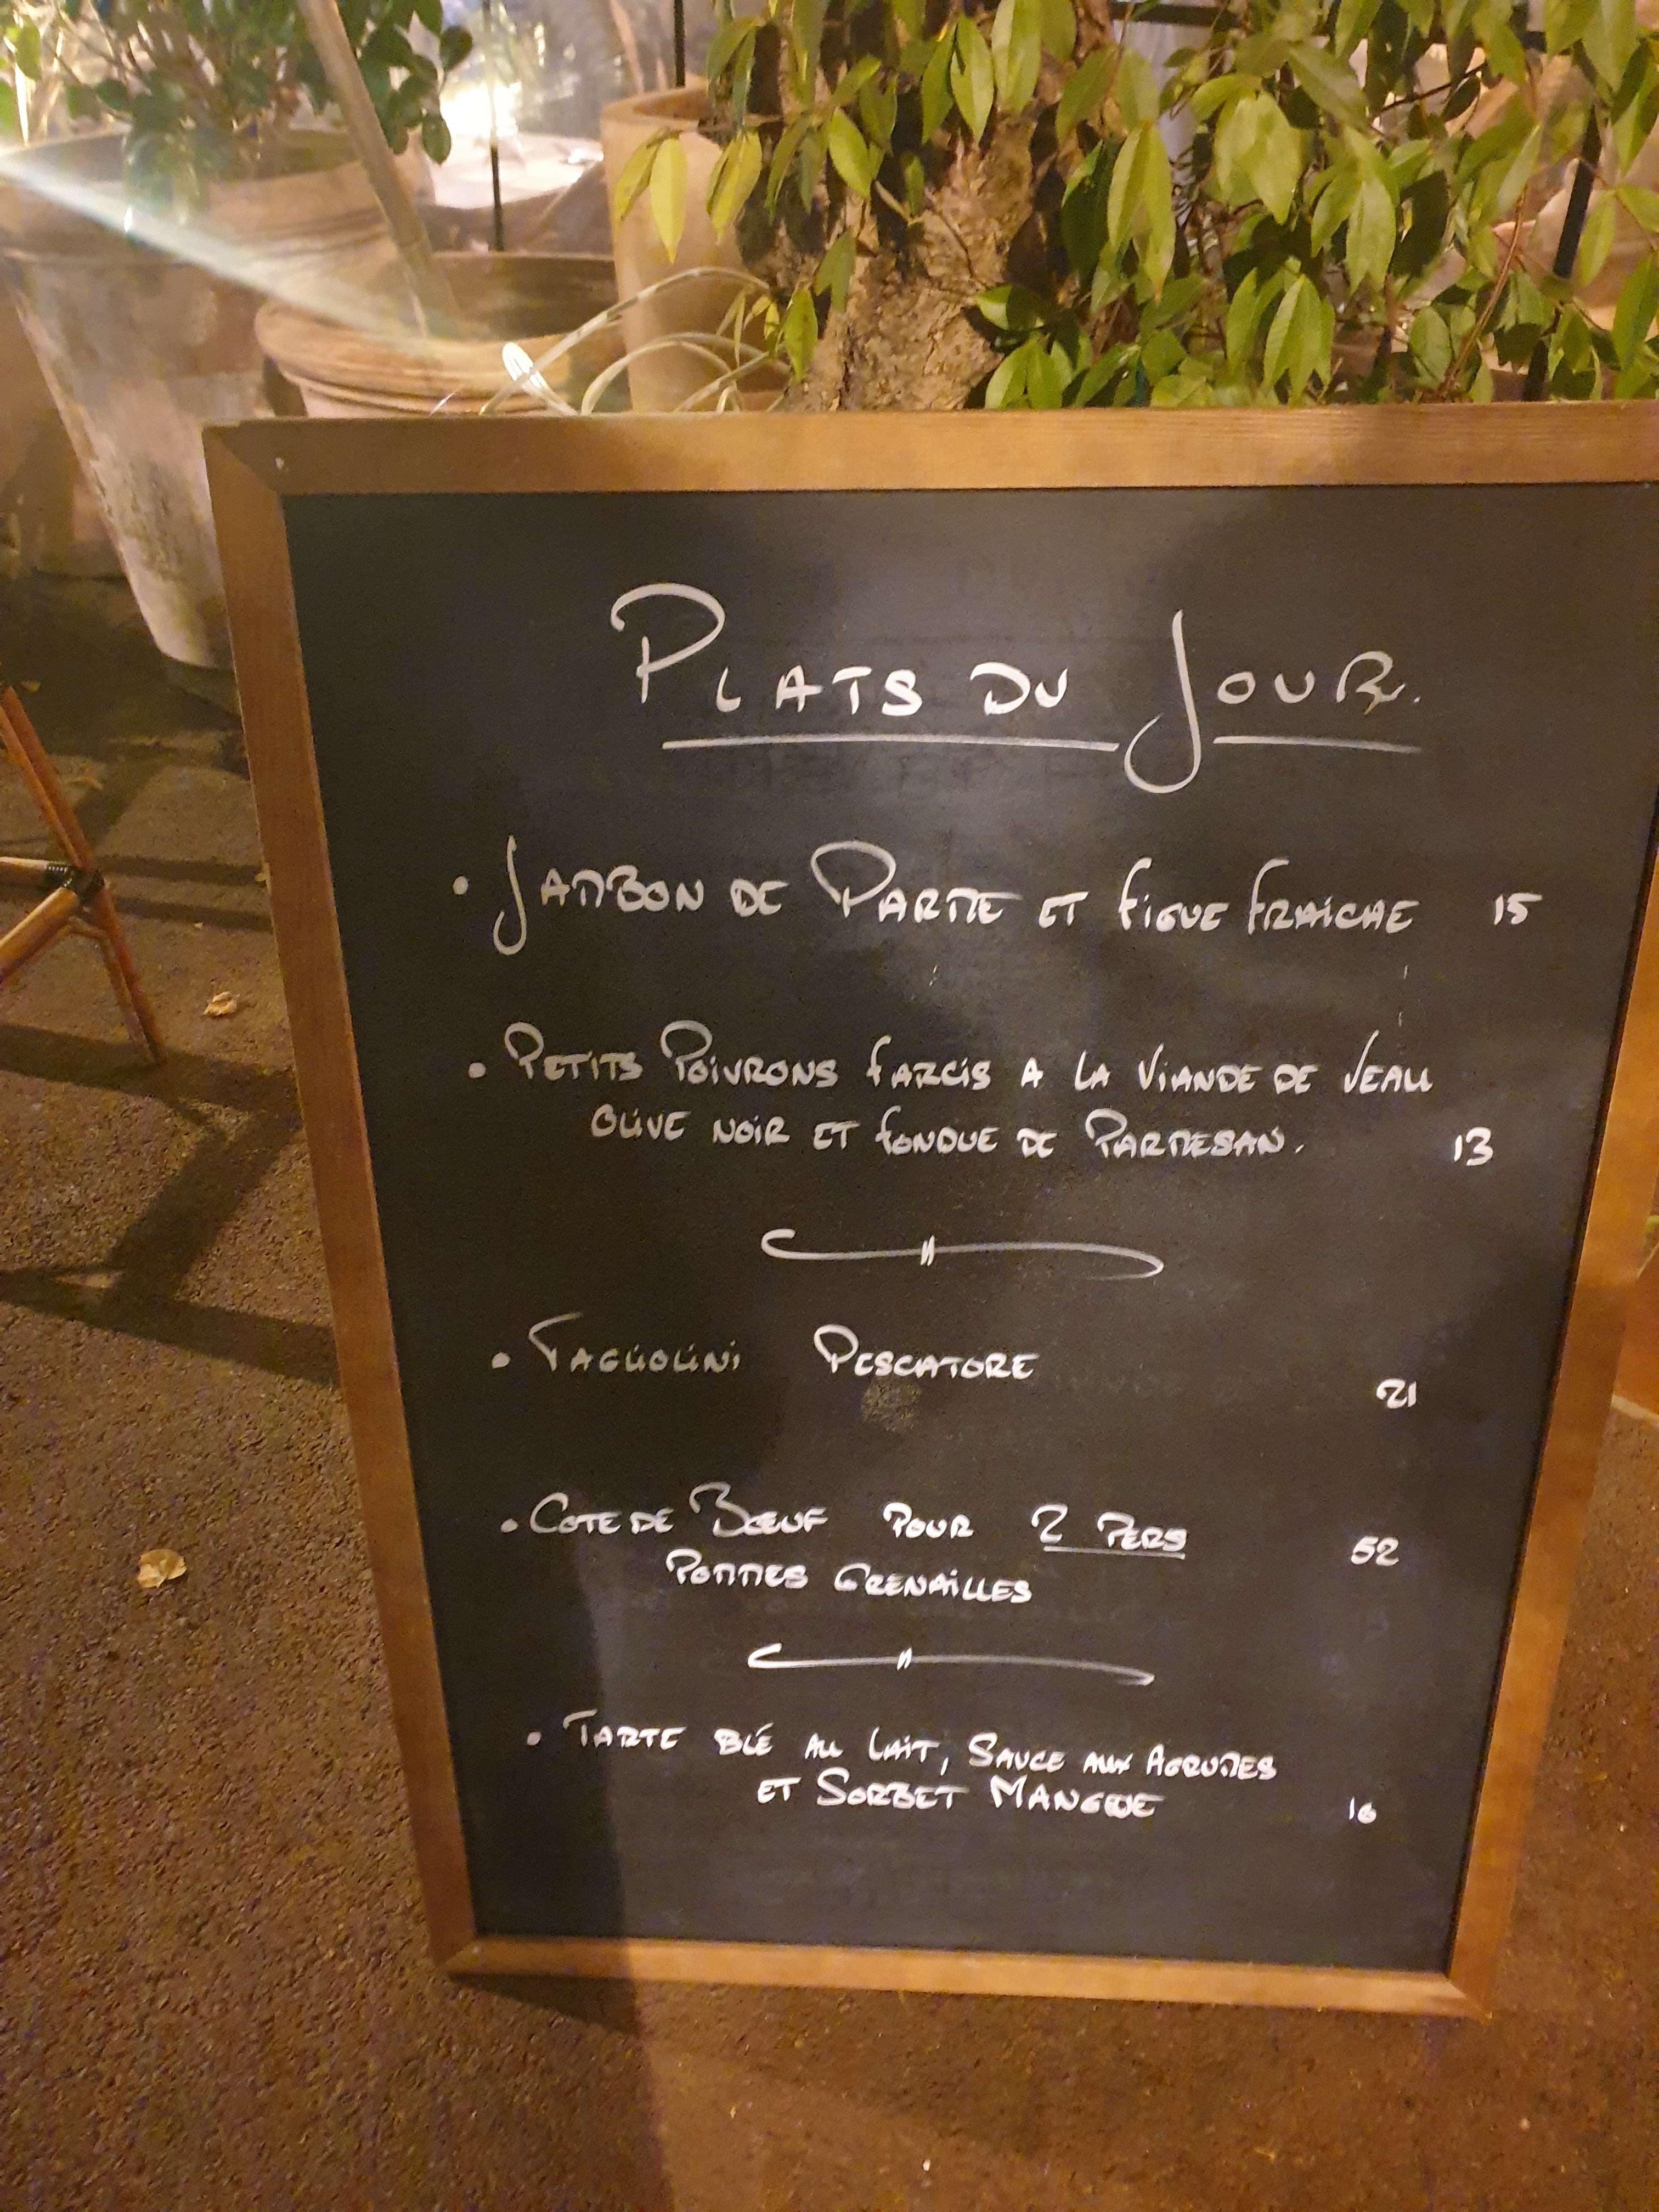 PLATS DU JOUR.
• JAMBON DE PARME ET FIGUE FRAICHE 15
• PETITS POIVRONS FARCIS A LA VIANDE DE VEAU
OLIVE NOIR ET FONDUE DE PARMESAN. 13
• TAGLIOLINI PESCATORE 21
• COTE DE BŒUF POUR 2 PERS 52
POMMES GRENAILLES
• TARTE BLÉ AU LAIT, SAUCE AUX AGRUMES
ET SORBET MANGUE 10